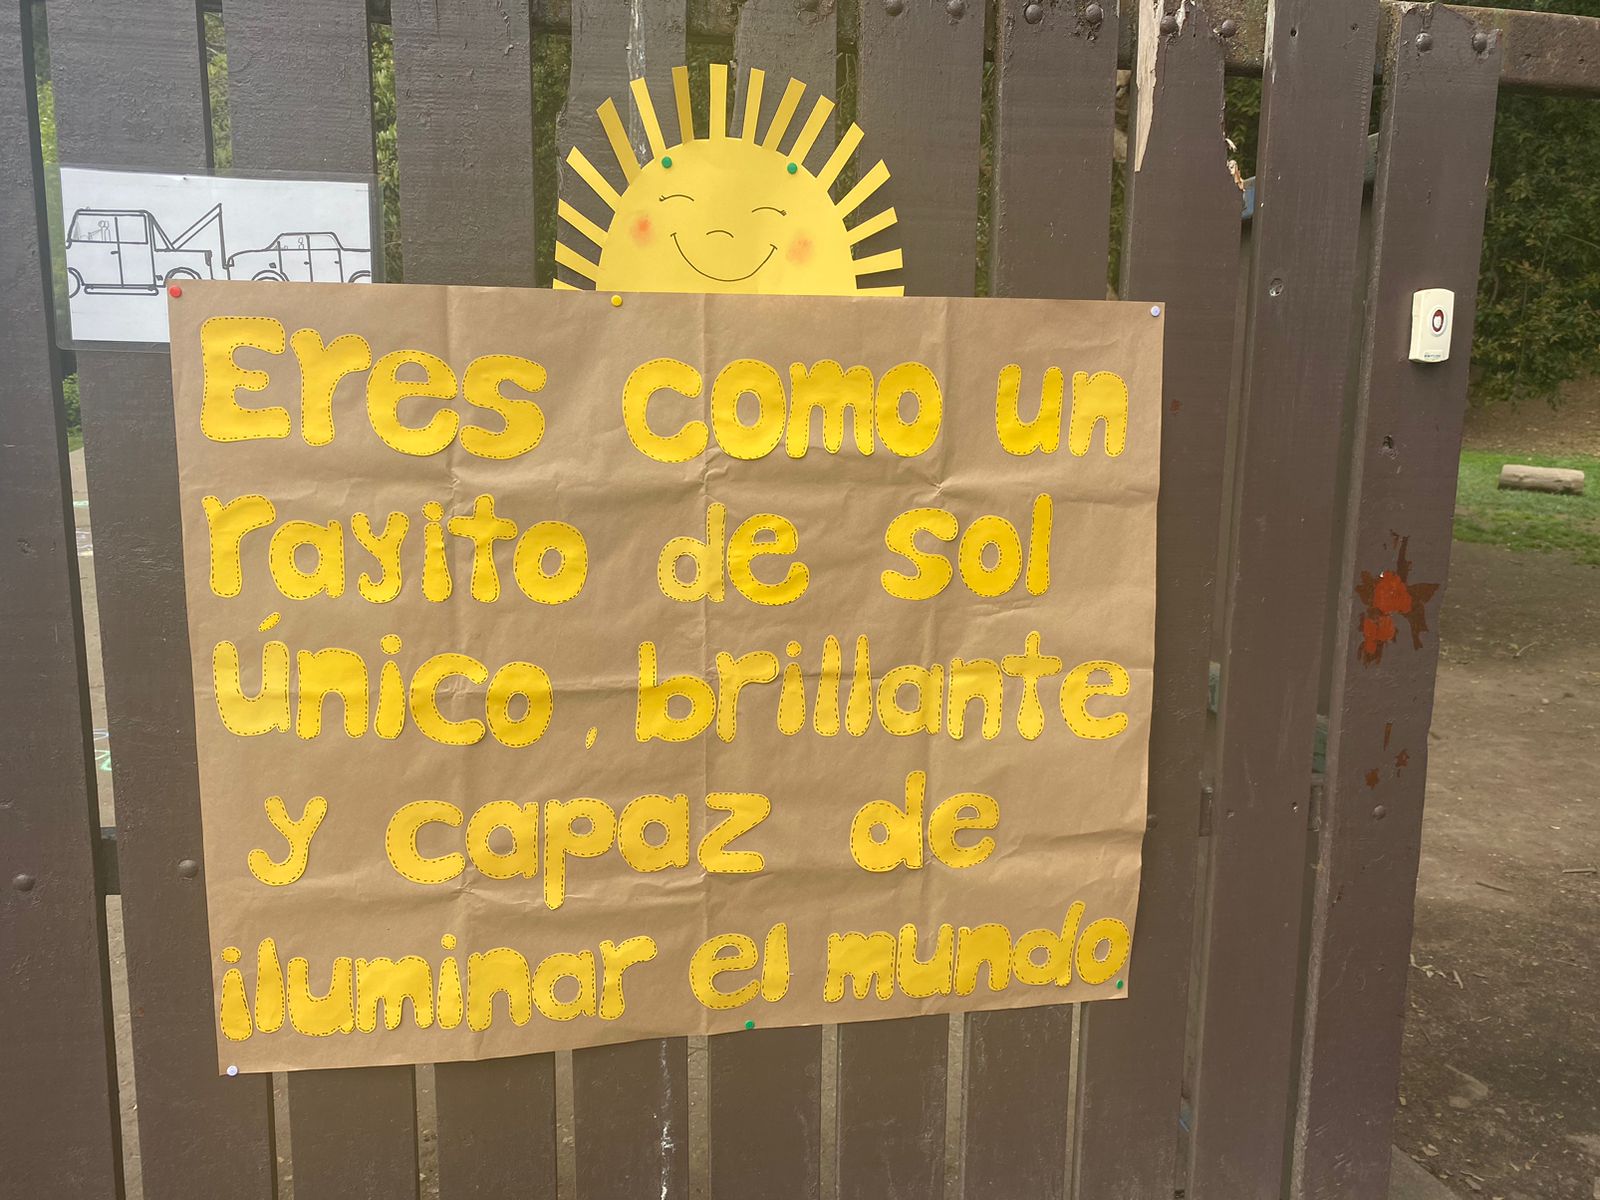 Eres como un
rayito de sol
único, brillante
y capaz de
iluminar el mundo